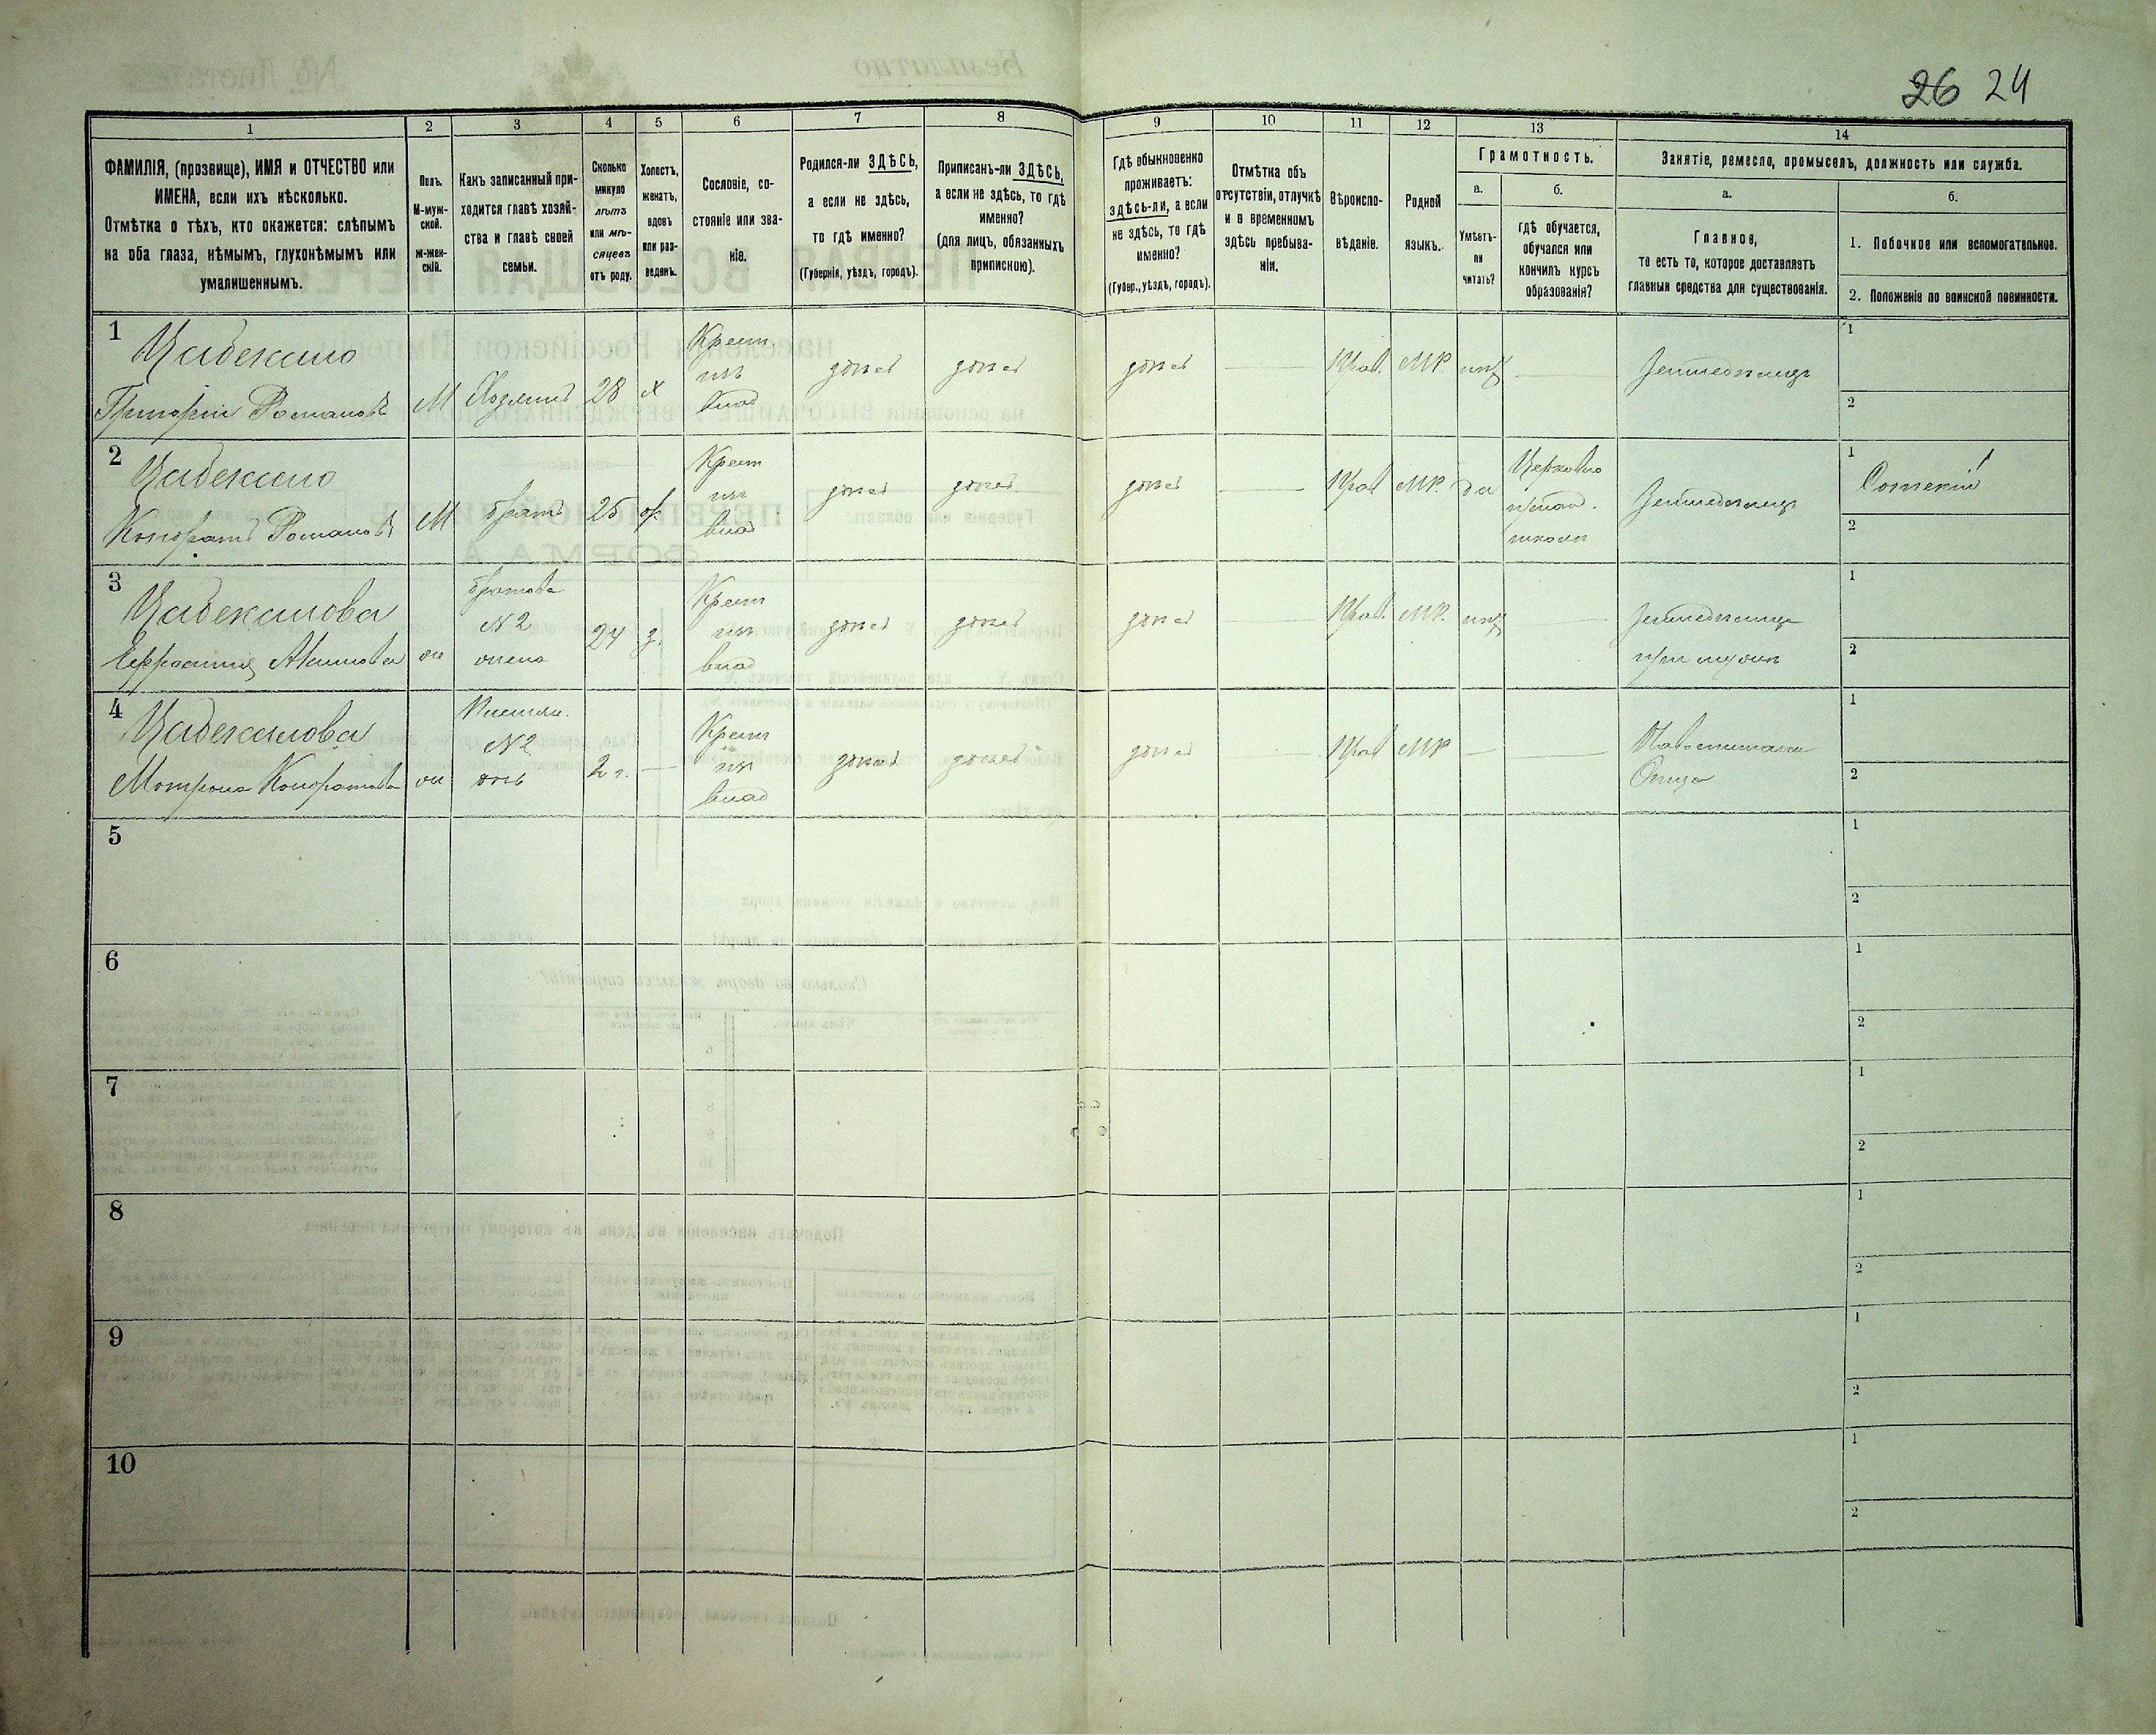 26 24
1 2 3 4 5 6 7 8 9 10 11 12 13 14
ФАМИЛІЯ, (прозвище), ИМЯ и ОТЧЕСТВО или
ИМЕНА, если ихъ нѣсколько.
Отмѣтка о тѣхъ, кто окажется: слѣпымъ
на оба глаза, нѣмымъ, глухонѣмымъ или
умалишеннымъ.
Полъ.
М-муж-
ской.
Ж-жен-
скій.
Какъ записанный при-
ходится главѣ хозяй-
ства и главѣ своей
семьи.
Сколько
минуло
лѣтъ
или мѣ-
сяцевъ
отъ роду.
Холостъ,
женатъ,
вдовъ
или раз-
веденъ.
Сословіе, со-
стояніе или зва-
ніе.
Родился-ли ЗДѢСЬ,
а если не здѣсь,
то гдѣ именно?
(Губернія, уѣздъ, городъ).
Приписанъ-ли ЗДѢСЬ,
а если не здѣсь, то гдѣ
именно?
(для лицъ, обязанныхъ
припискою).
Гдѣ обыкновенно
проживаетъ:
здѣсь-ли, а если
не здѣсь, то гдѣ
именно?
(Губер., уѣздъ, городъ).
Отмѣтка объ
отсутствіи, отлучкѣ
и о временномъ
здѣсь пребыва-
ніи.
Вѣроиспо-
вѣданіе.
Родной
языкъ.
Грамотность.
а.
Умѣетъ-
ли
читать?
б.
гдѣ обучается,
обучался или
кончилъ курсъ
образованія?
Занятіе, ремесло, промыселъ, должность или служба.
а.
Главное,
то есть то, которое доставляетъ
главныя средства для существованія.
б.
1. Побочное или вспомогательное.
2. Положеніе по воинской повинности.
1
Григорій Романовъ
М
Хозяинъ
28
х
Крест
из
влад
здѣсь
здѣсь
здѣсь
Прав.
МР.
нѣт
Земледѣлецъ
1
2
2
Кондратъ Романовъ
М
братъ
25
ж.
Крест
из
влад
здѣсь
здѣсь
здѣсь
Прав
МР.
да
Церковно
приход.
школѣ
Земледѣлецъ
1
Сотскій
2
3
братова
N 2
жена
24
з.
Крест
из
влад
здѣсь
здѣсь
здѣсь
Прав.
МР.
нѣт
Земледѣлица
при мужѣ
1
2
4
Мотрона Кондратова
Племян.
N 2
дочь
2 г.
Крест
из
влад
здѣсь
здѣсь
здѣсь
Прав
МР
Отца
1
2
5
1
2
6
1
2
7
1
2
8
1
2
9
1
2
10
1
2